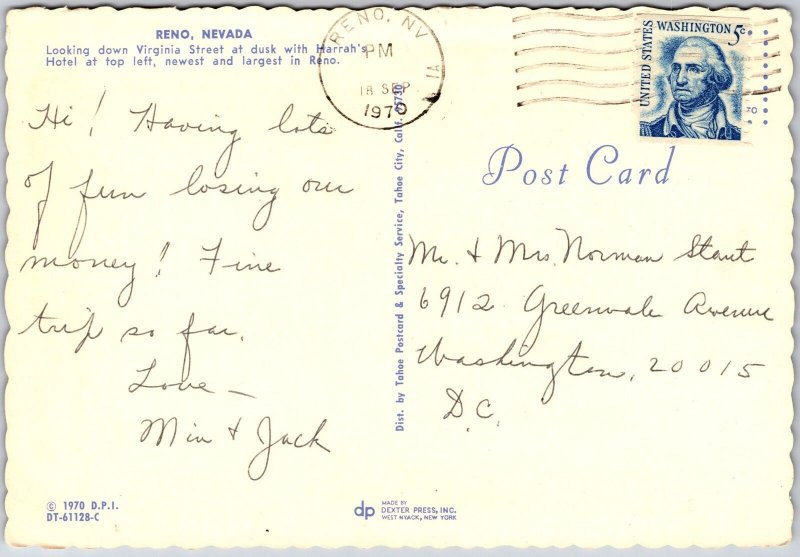 RENO, NEVADA
Looking down Virginia Street at dusk with Harrah's
Hotel at top left, newest and largest in Reno.
RENO, NV
PM
18 SEP
1970
UNITED STATES
WASHINGTON 5c
Hi! Having lots
of fun losing our
money! Fine
trip so far.
Love –
Min & Jack
Dist. by Tahoe Postcard & Specialty Service, Tahoe City, Calif. 95730
Post Card
Mr. & Mrs. Norman Staut
6912 Greenvale Avenue
Washington, 20015
D.C.
© 1970 D.P.I.
DT-61128-C
dp
MADE BY
DEXTER PRESS, INC.
WEST NYACK, NEW YORK